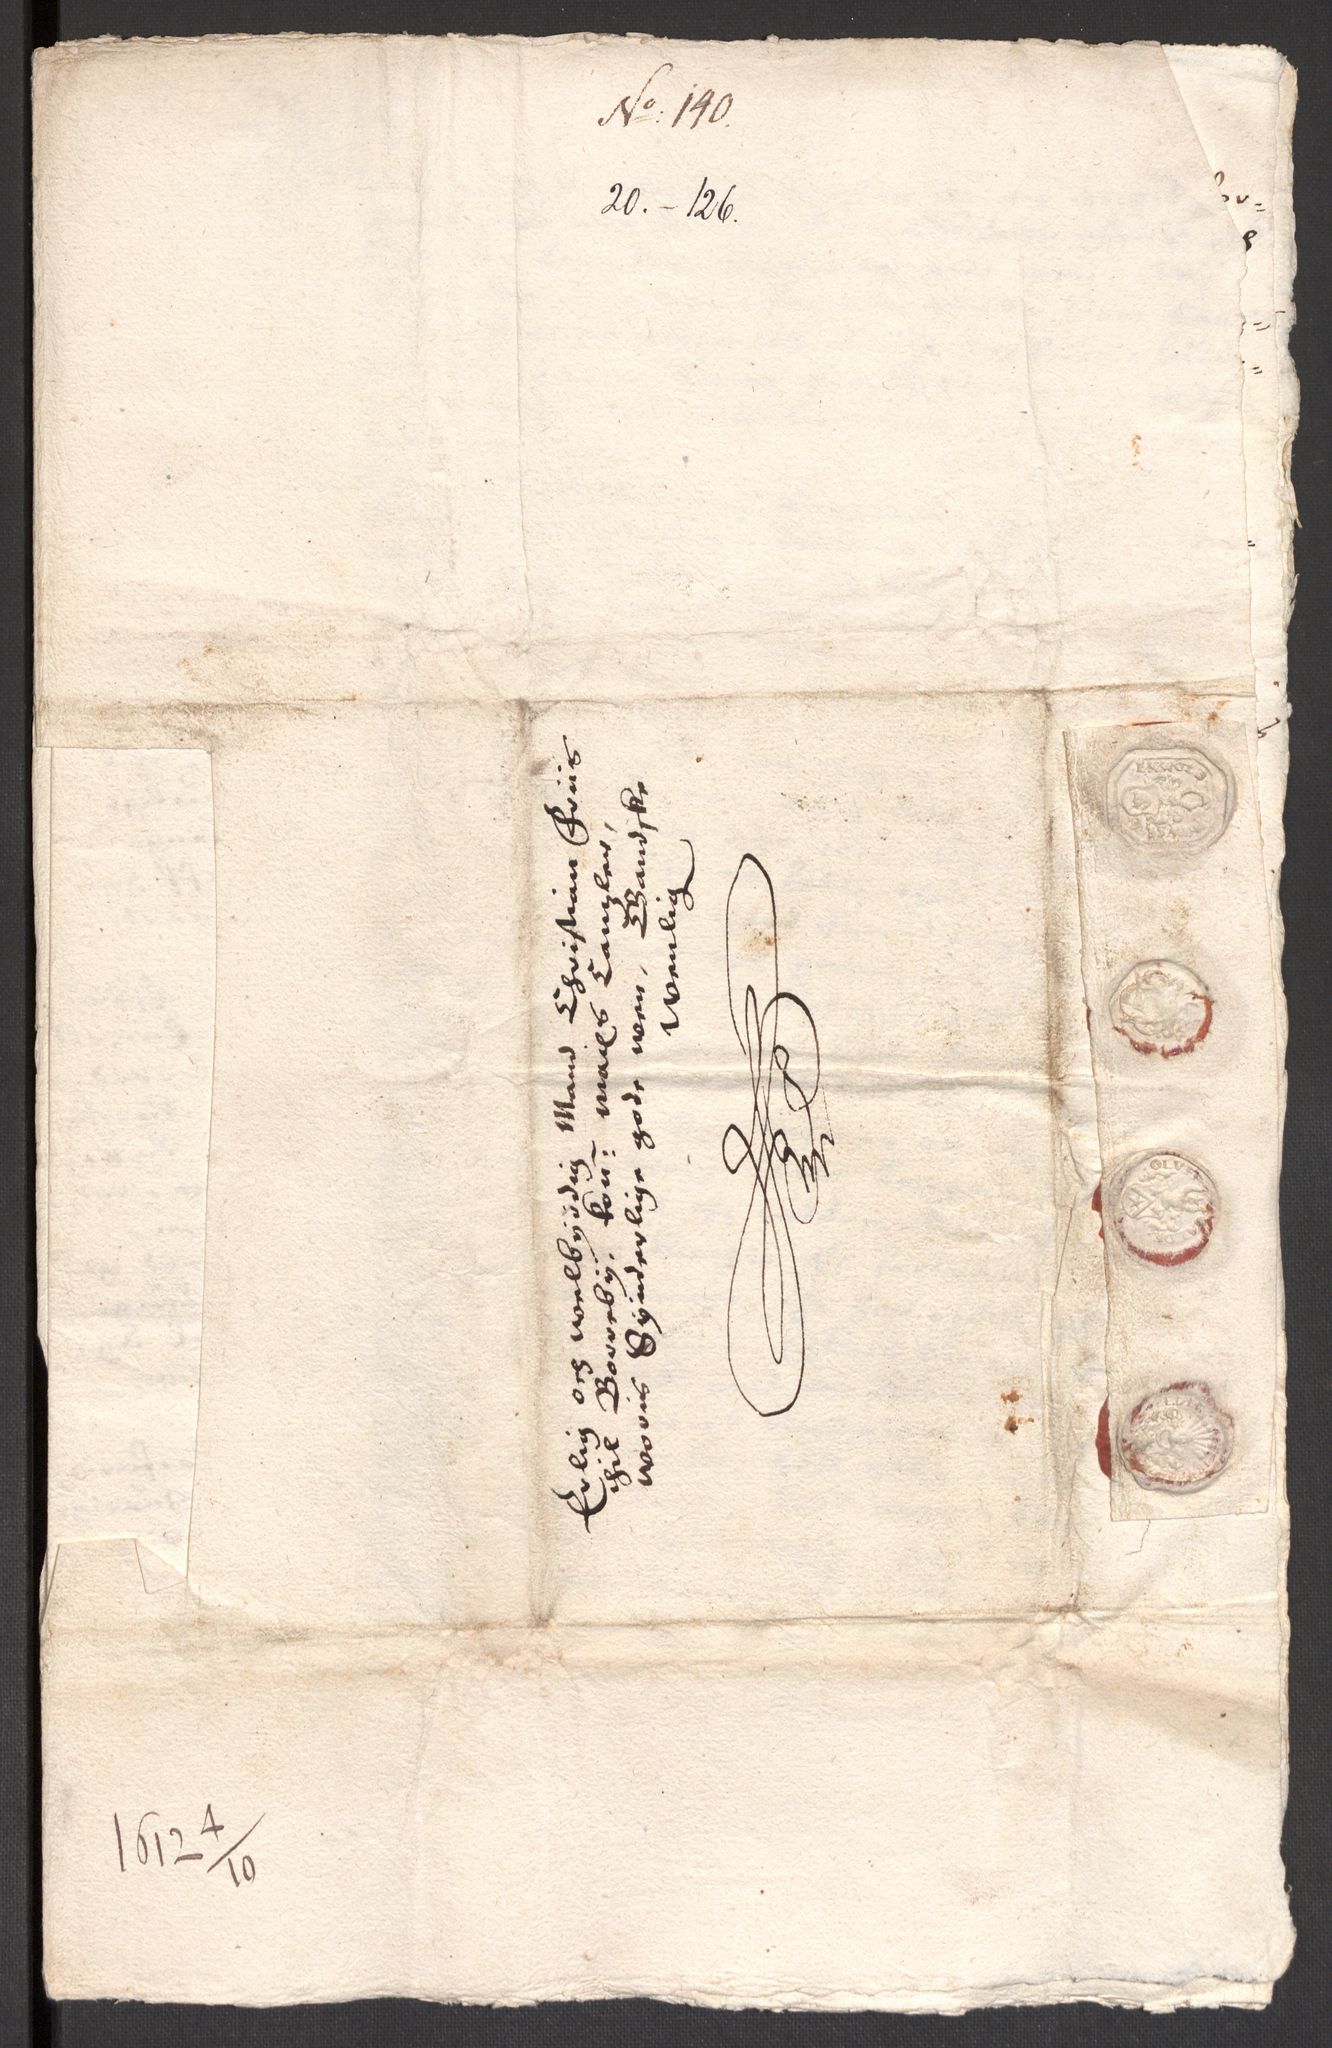 No: 140.
20. - 126.
Erlig och welbÿrdig Mand Christian Friis
thil Borrebÿ, kon: maÿes Cantzler,
woris Sÿnderlige gode wen, Gandske
wenlig
OLVF
1612 4/10